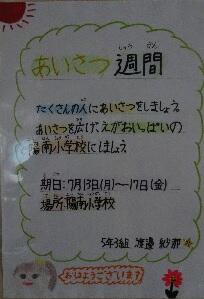 あいさつ週間
しゅう かん
たくさんの人にあいさつをしましょう。
あいさつを広げ、えがおいっぱいの
陽南小学校にしよう
期日:7月13日(月)〜17日(金)
場所:陽南小学校
5年3組 渡邉 紗那